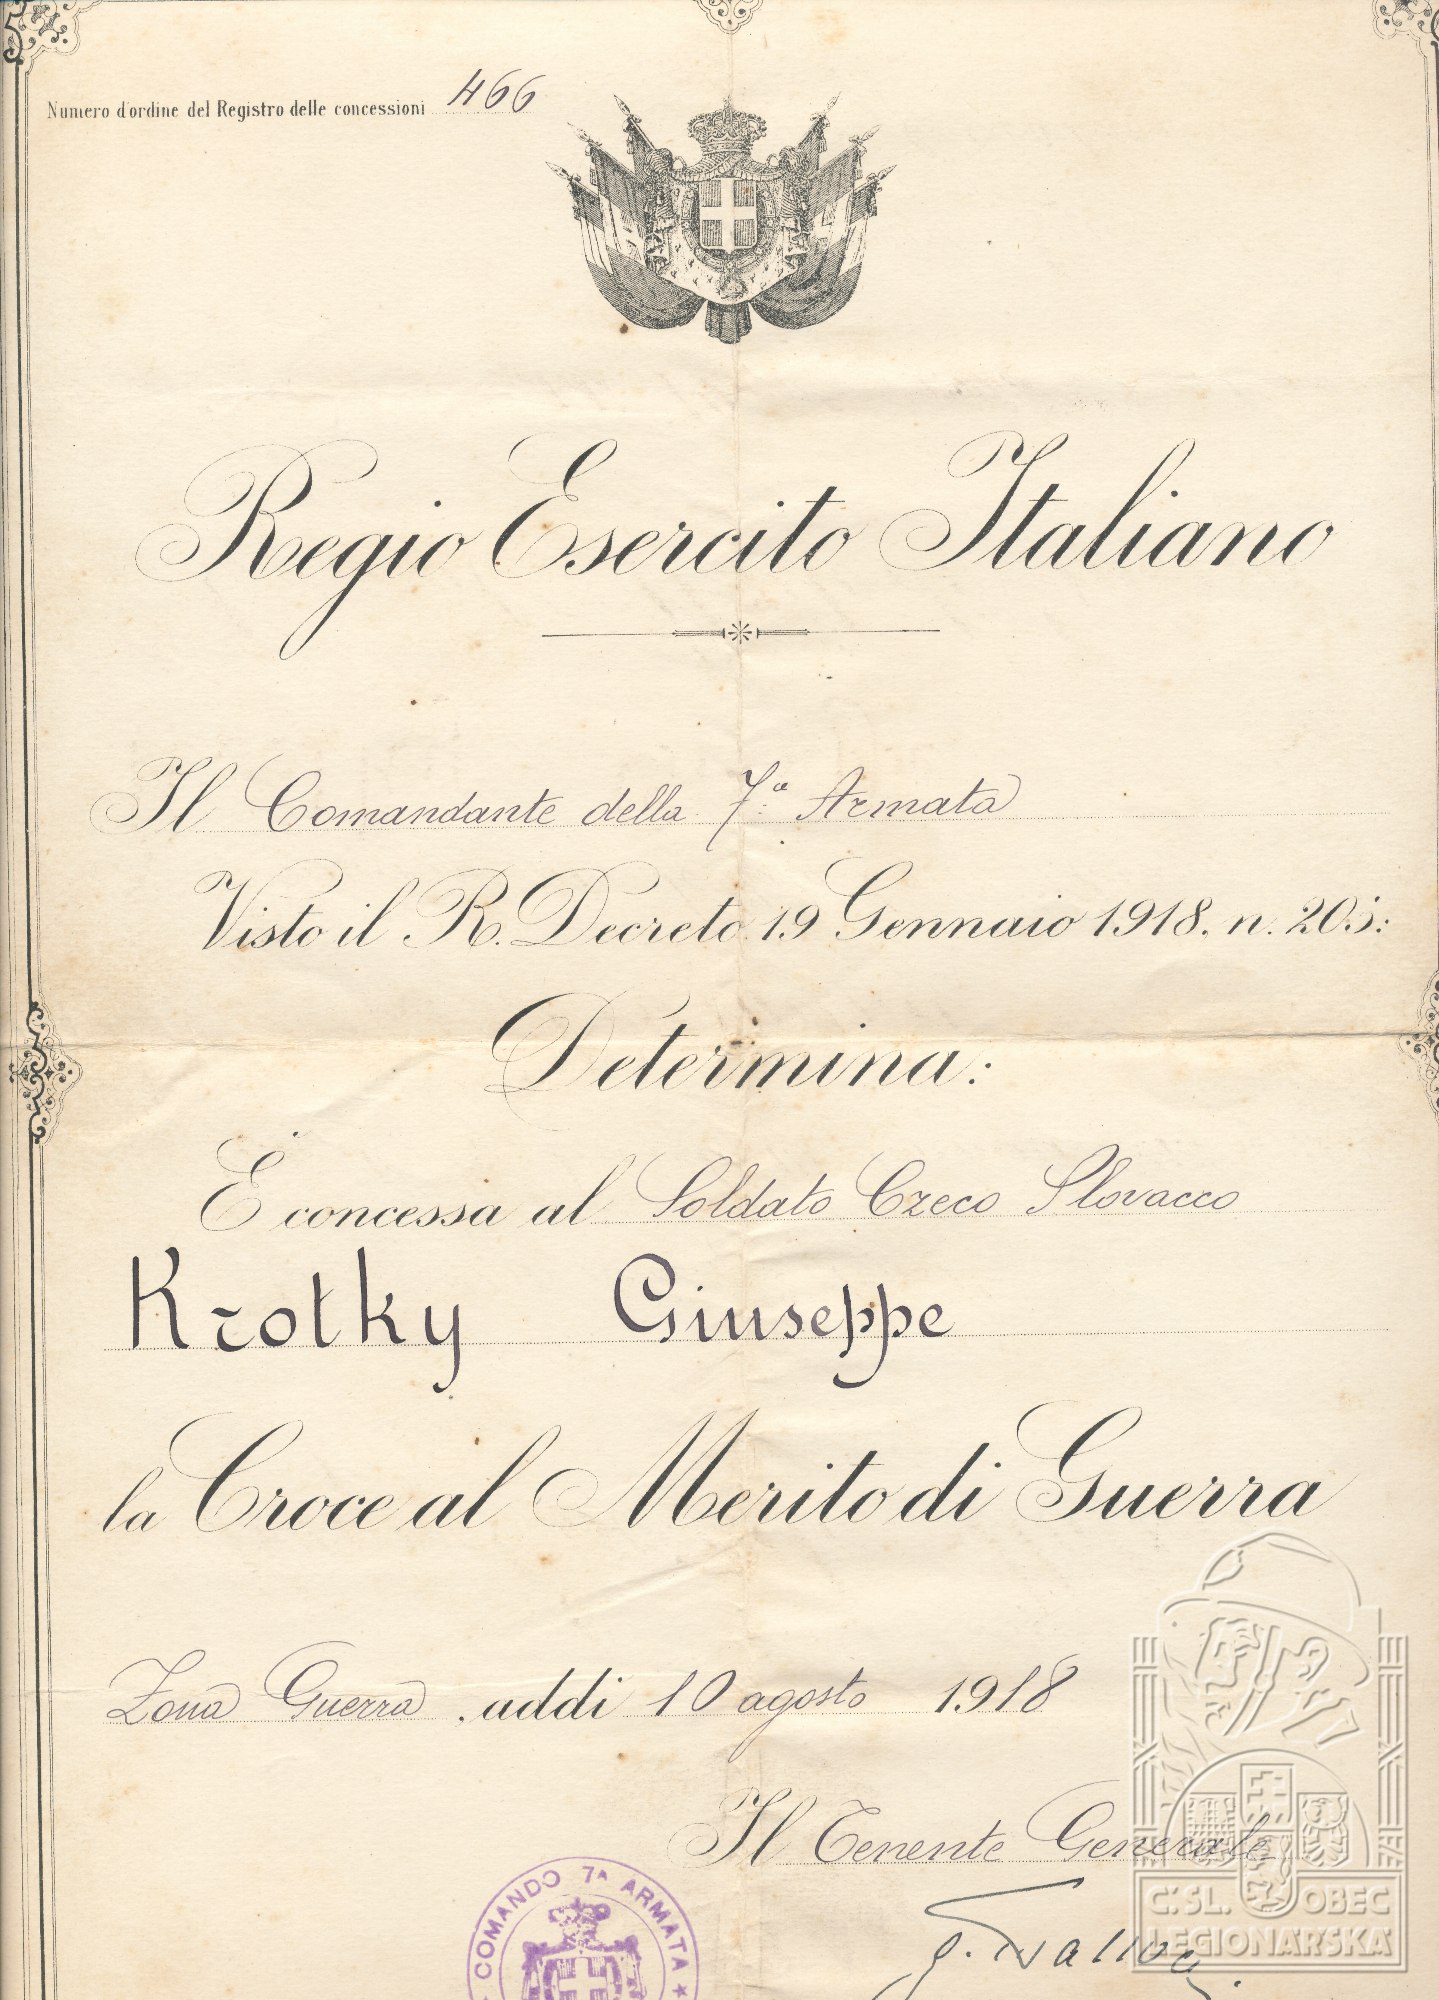 Numero d'ordine del Registro delle concessioni 466
Regio Esercito Italiano
Il Comandante della 7ª Armata
Visto il R. Decreto 19 Gennaio 1918. n. 205:
Determina:
È concessa al Soldato Czeco Slovacco
Krotky Giuseppe
la Croce al Merito di Guerra
Zona Guerra, addì 10 agosto 1918
Il Tenente Generale
COMANDO 7ᴬ ARMATA
Č.SL. OBEC
LEGIONÁŘSKÁ